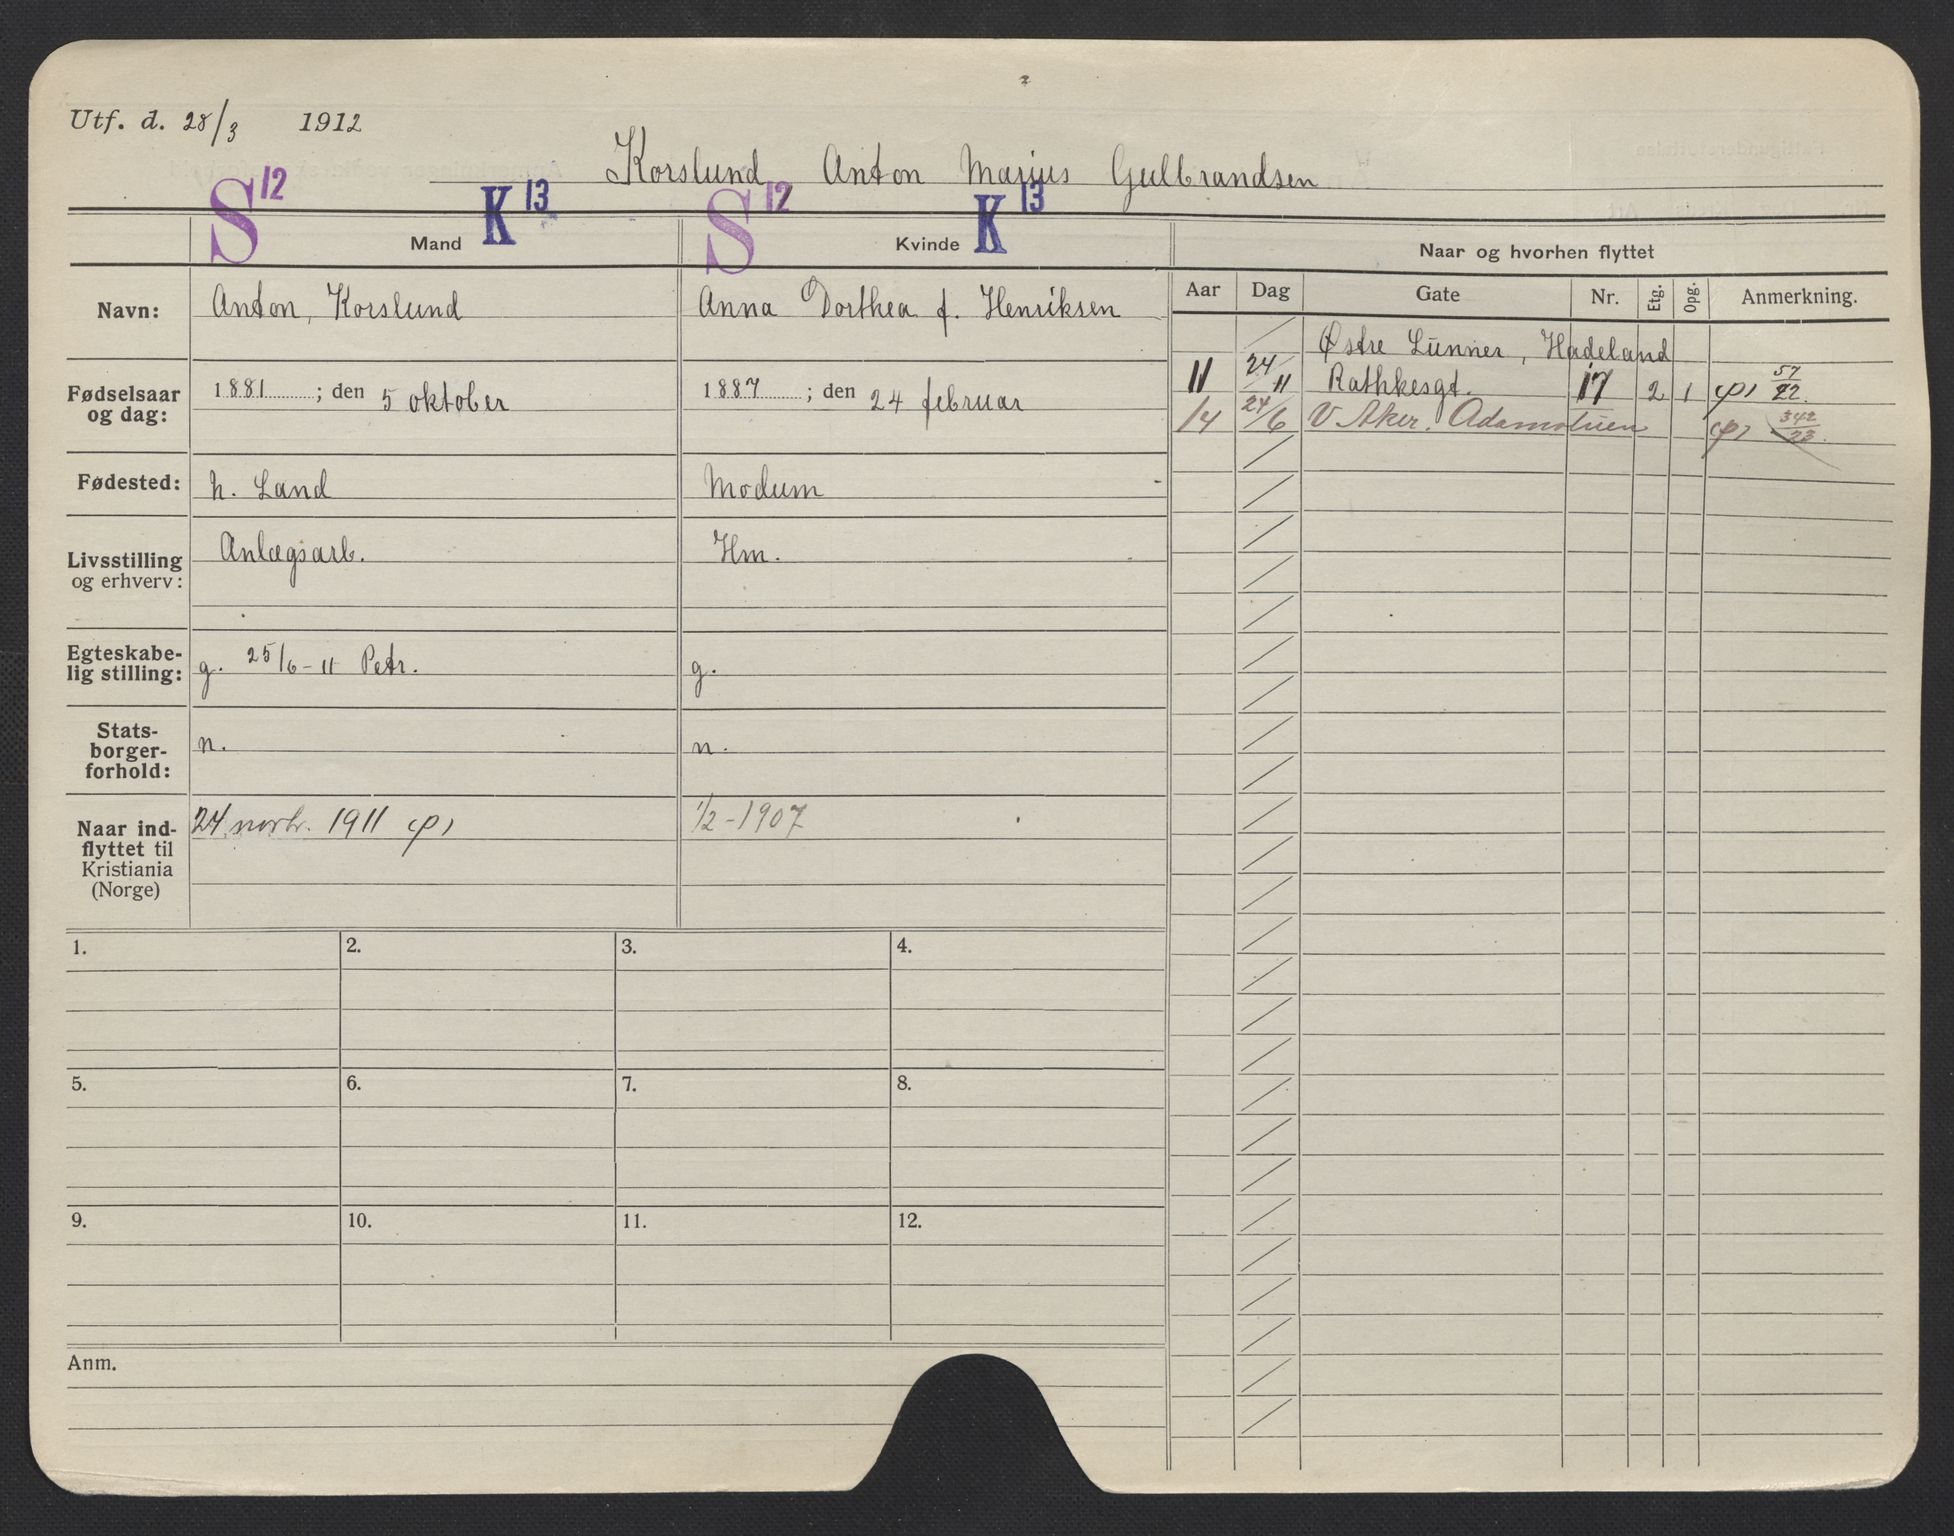 Utf. d. 28/3 1912
Korslund Anton Marius Gulbrandsen
S 12 K 13 S 12 K 13
Mand Kvinde Naar og hvorhen flyttet
Navn: Anton, Korslund Anna Dorthea f. Henriksen
Aar Dag Gate Nr. Etg. Opg. Anmerkning.
Østre Lunner, Hadeland
11 24/11 Rathkesgt. 17 2 1 57/22.
14 24/6 V. Aker. Adamstuen 342/23.
Fødselsaar og dag: 1881 ; den 5 oktober 1887 ; den 24 februar
Fødested: N. Land Modum
Livsstilling og erhverv: Anlægsarb. Hm.
Egteskabe-
lig stilling: g. 25/6-11 Petr. g.
Stats-
borger-
forhold: n. n.
Naar ind-
flyttet til
Kristiania
(Norge)
24 novbr. 1911 1/2-1907
1. 2. 3. 4.
5. 6. 7. 8.
9. 10. 11. 12.
Anm.